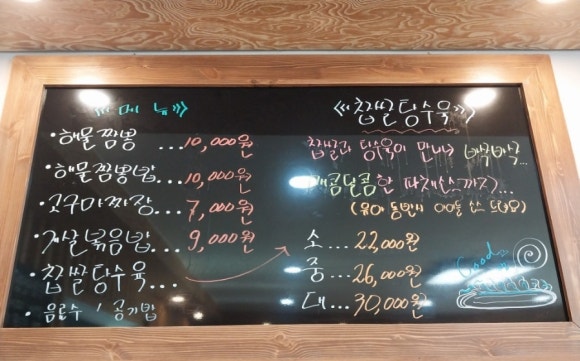 《메 뉴》
·해물짬뽕 ...10,000원
·해물짬뽕밥...10,000원
·고구마짜장...7,000원
·게살볶음밥...9,000원
·찹쌀탕수육...
·음료수 / 공기밥
《찹쌀탕수육》
찹쌀과 탕수육이 만나 바삭바삭...
새콤달콤한 파채소스까지...
소...22,000원
중...26,000원
대...30,000원
Good